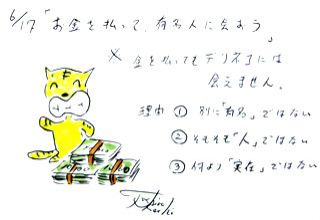 6/17「お金を払って、有名人に会おう」
※ 金を払ってもデリネコには
会えません。
理由 ① 別に「有名」ではない
② そもそも「人」ではない
③ 何より「実在」ではない